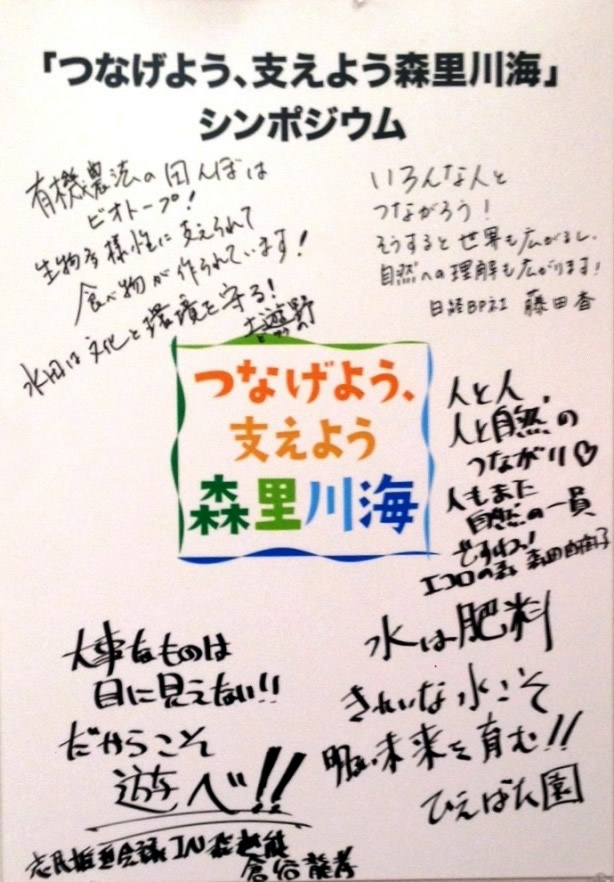 「つなげよう、支えよう森里川海」
シンポジウム
有機農法の田んぼは
ビオトープ!
生物多様性に支えられて
食べ物が作られています!
水田は文化と環境を守る!
遊野
いろんな人と
つながろう!
そうすると世界も広がるし、
自然への理解も広がります!
日経BP社 藤田香
つなげよう、
支えよう
森里川海
人と人、
人と自然の
つながり♡
人もまた
自然の一員
ですね!
エコロの森 森田由樹子
大事なものは
目に見えない!!
だからこそ
遊べ!!
市民推進会議IN
倉谷
水は肥料
きれいな水こそ
明るい未来を育む!!
ひえばた園